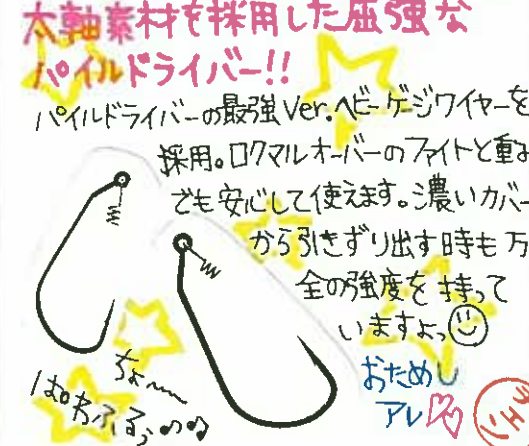 太軸素材を採用した屈強な
パイルドライバー!!
パイルドライバーの最強Ver.ヘビーゲージワイヤーを
採用。ロクマルオーバーのファイトと重み
でも安心して使えます。濃いカバー
から引きずり出す時も万
全の強度を持って
いますよっ
おためし
アレ
ちょ〜
ぱわふるぅ